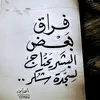 فراق
بعض
البشر يحتاج
لسجدة شكر ..